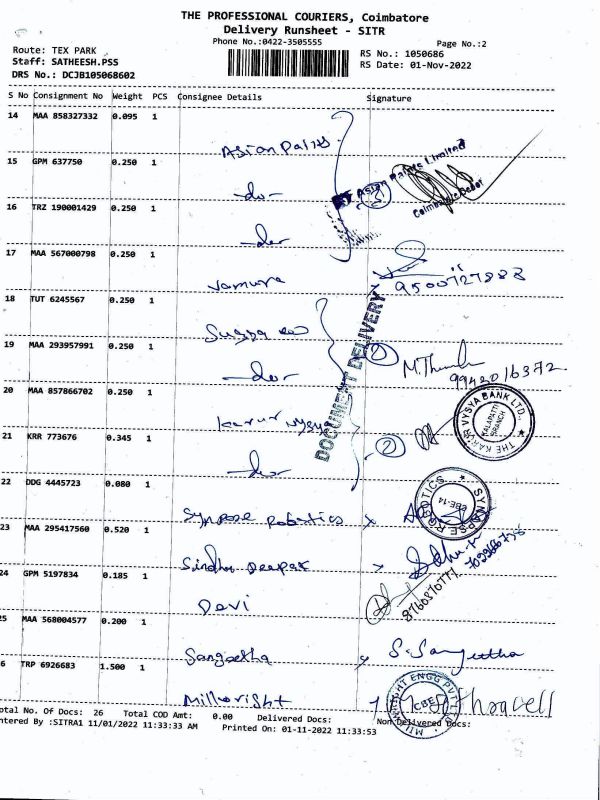 THE PROFESSIONAL COURIERS, Coimbatore
Delivery Runsheet - SITR
Phone No.:0422-3505555
Page No.:2
Route: TEX PARK
Staff: SATHEESH.PSS
DRS No.: DCJB105068602
RS No.: 1050686
RS Date: 01-Nov-2022
S No Consignment No Weight PCS Consignee Details Signature
14 MAA 858327332 0.095 1
Asian Paints
Asian Paints Limited
15 GPM 637750 0.250 1
-do-
3
16 TRZ 190001429 0.250 1
-do-
17 MAA 567000798 0.250 1
Jamuna
18 TUT 6245567 0.250 1
DOCUMENT DELIVERY
19 MAA 293957991 0.250 1
-do-
2
20 MAA 857866702 0.250 1
Karur Vysya
THE KARUR VYSYA BANK LTD.,
KALAPATTI
BRANCH
21 KRR 773676 0.345 1
-do-
2
22 DDG 4445723 0.080 1
Synapse Robotics x
SYNAPSE ROBOTICS
CBE-14
23 MAA 295417560 0.520 1
Sindhu Deepak
24 GPM 5197834 0.185 1
Devi
25 MAA 568004577 0.200 1
Sangeetha
S. Sangeetha
6 TRP 6926683 1.500 1
Millwright
MILLWRIGHT ENGG PVT LTD
CBE
otal No. Of Docs: 26 Total COD Amt: 0.00 Delivered Docs: Non Delivered Docs:
ntered By :SITRA1 11/01/2022 11:33:33 AM Printed On: 01-11-2022 11:33:53